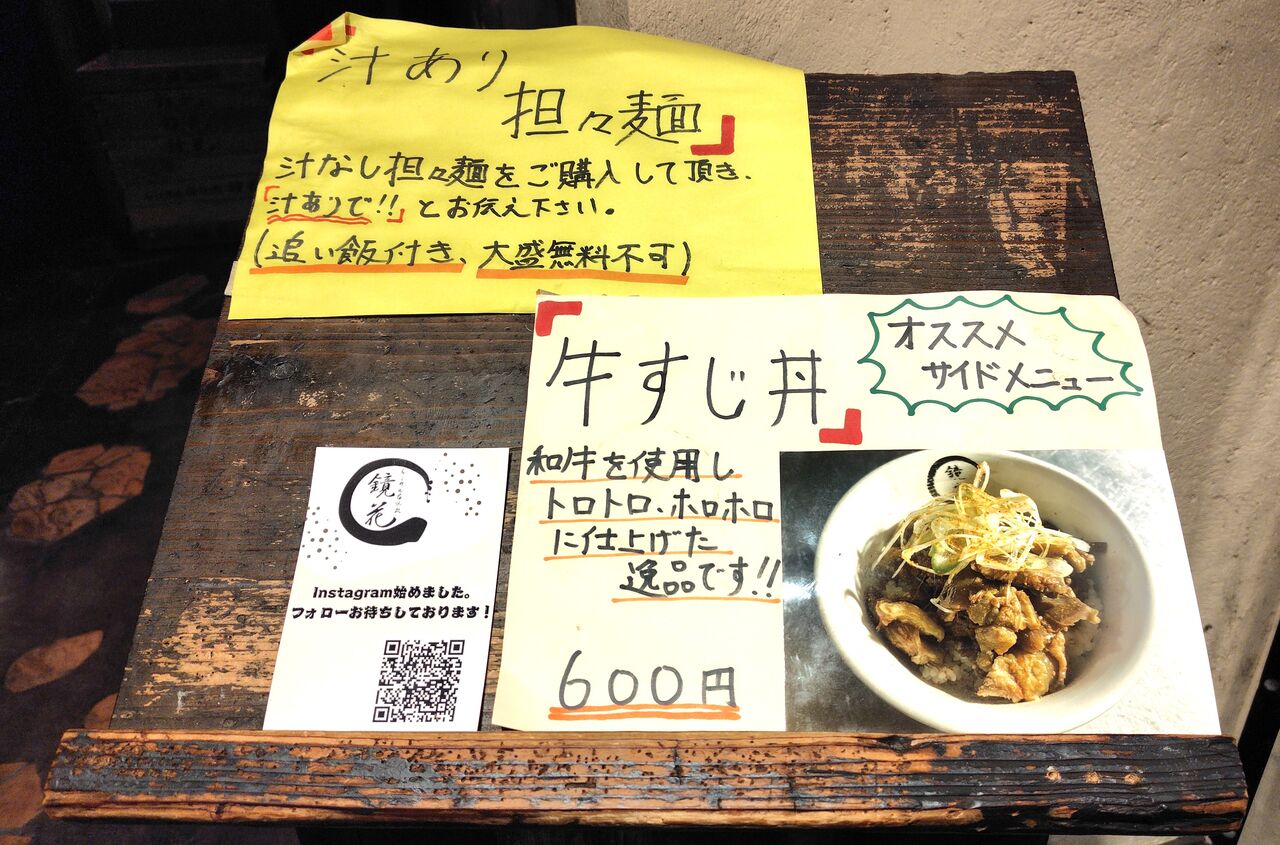 汁あり
担々麺」
汁なし担々麺をご購入して頂き、
「汁ありで!!」とお伝え下さい。
(追い飯付き、大盛無料不可)
「牛すじ丼」
オススメ
サイドメニュー
和牛を使用し
トロトロ、ホロホロ
に仕上げた
逸品です!!
600円
鏡花
Instagram始めました。
フォローお待ちしております！